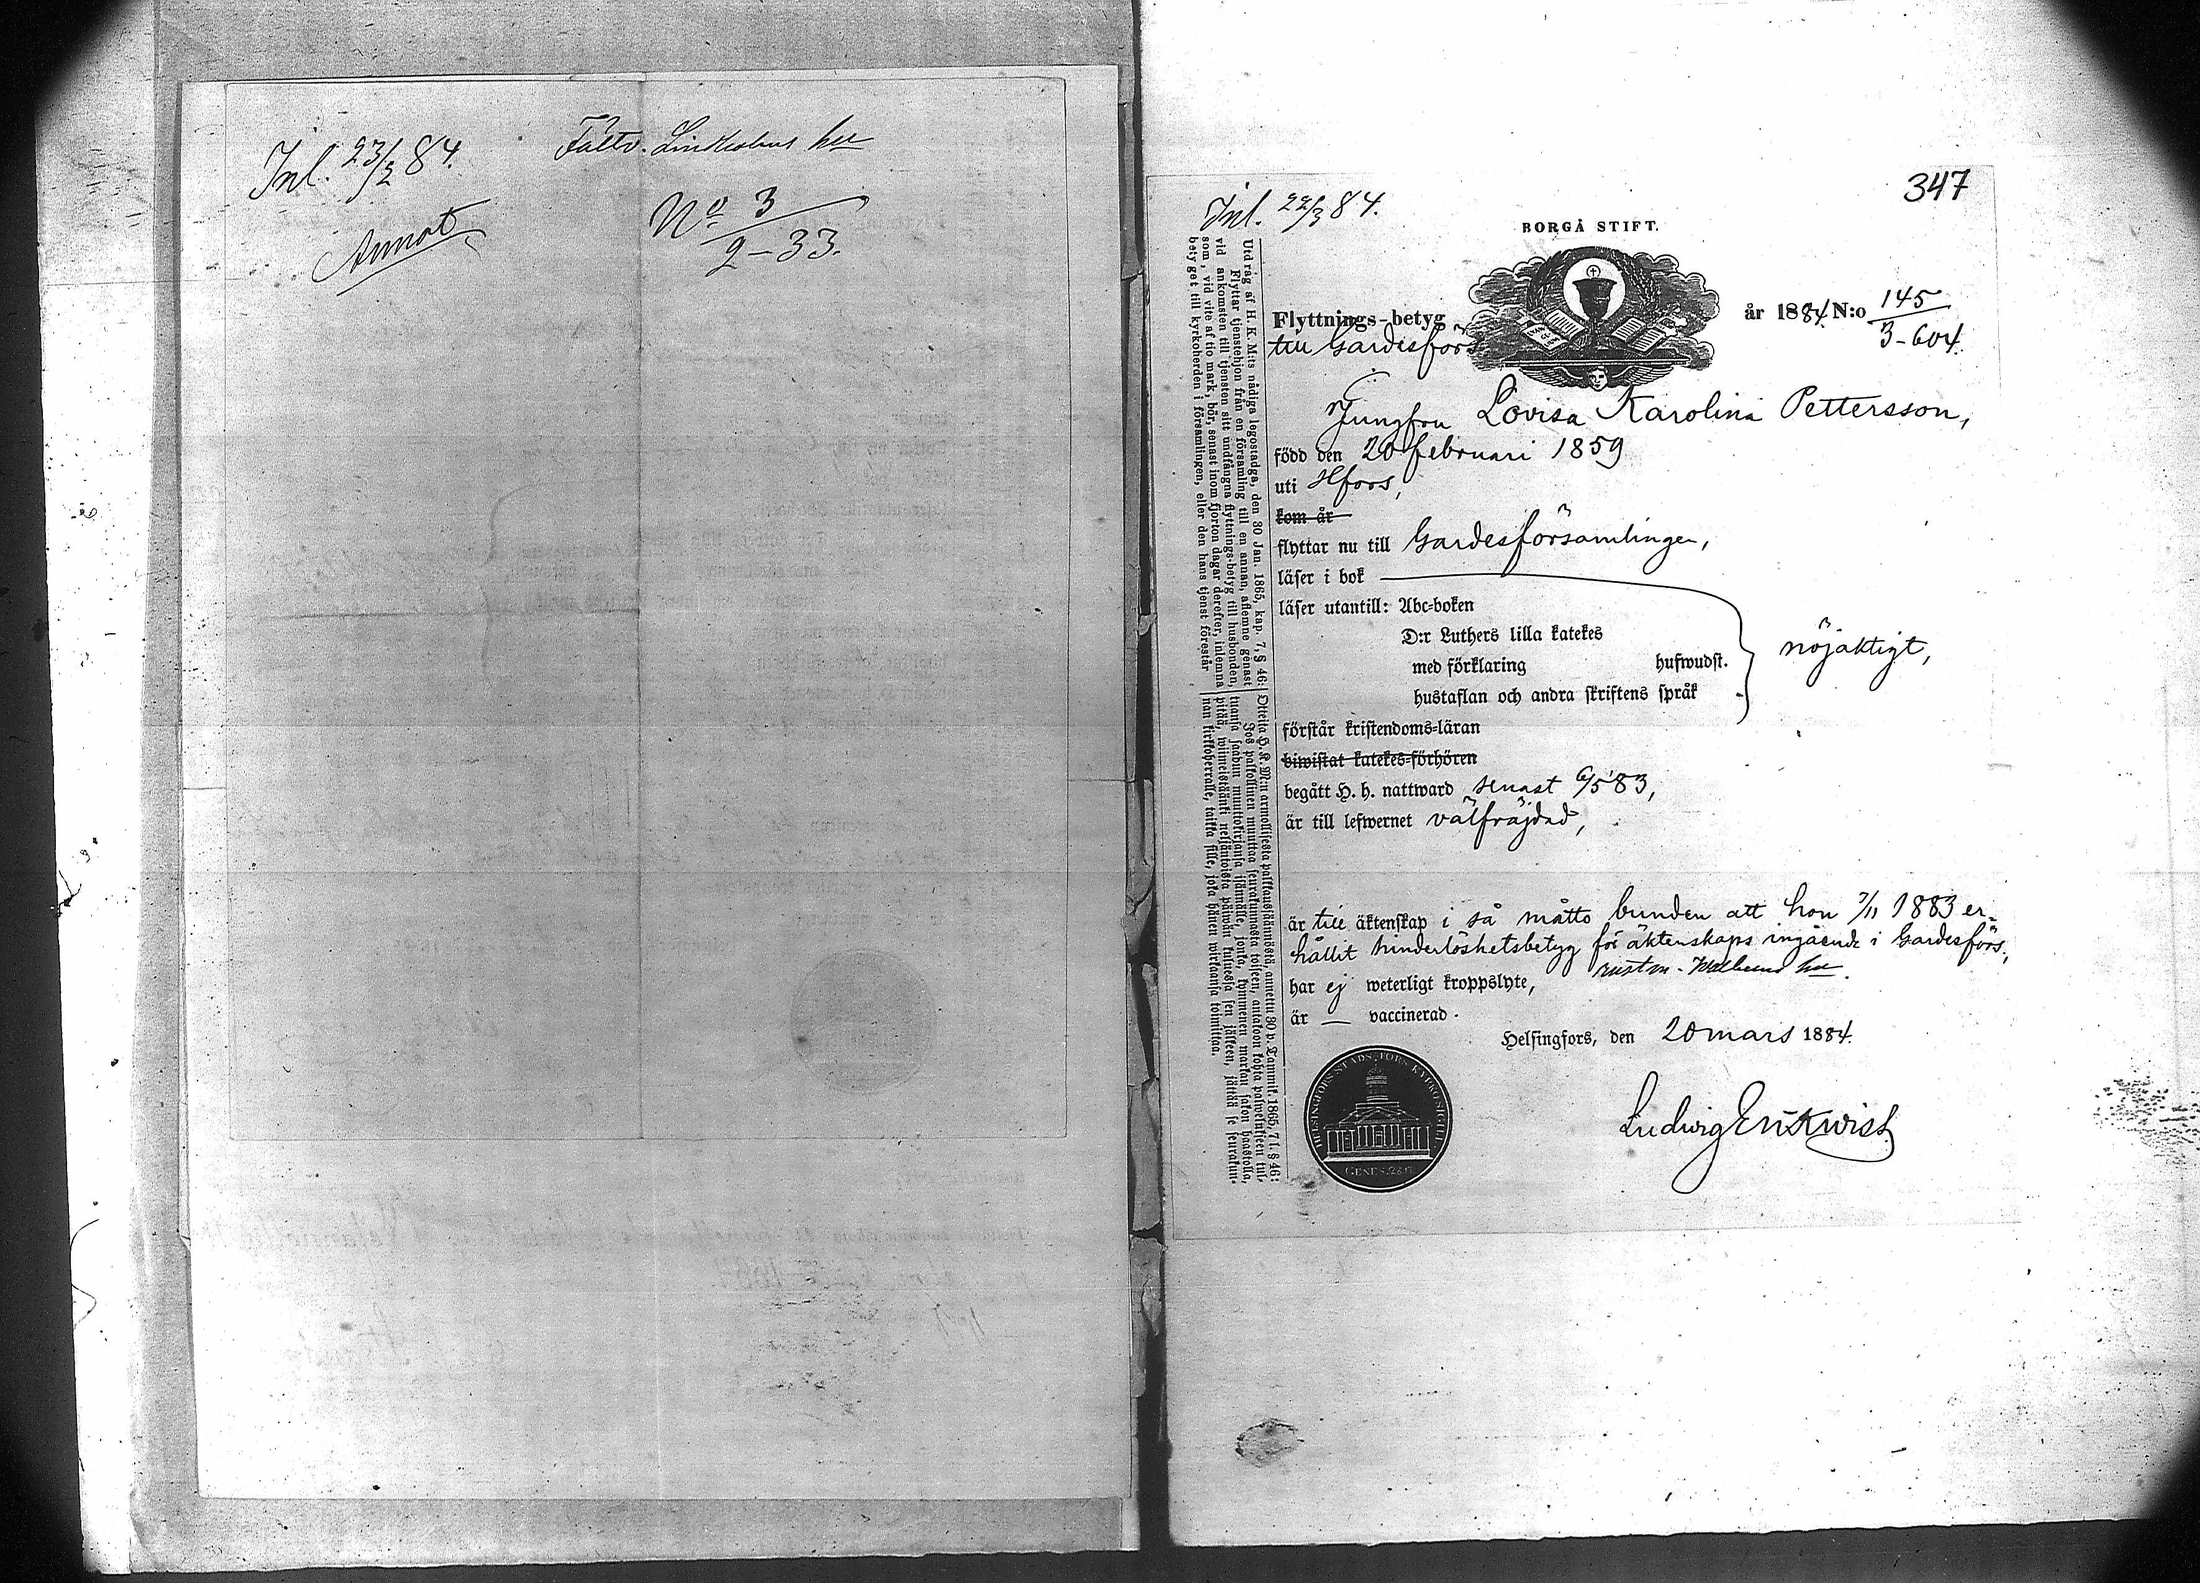 Inl. 23/2 84.
Fältv. Linkolas hu
Annot
No 3
2-33.
347
Inl. 22/3 84.
BORGÅ STIFT.
Flyttnings-betyg
år 1884 N:o 145
3-604.
till Gardesförs
Jungfru Lovisa Karolina Pettersson,
född den 20 februari 1859
uti Hfors,
kom år
flyttar nu till Gardesförsamlingen,
läser i bok
läser utantill: Abc-boken
D:r Luthers lilla katekes
med förklaring hufwudst.
nöjaktigt,
hustaflan och andra skriftens språk
förstår kristendoms-läran
biwistat katekes-förhören
begått H. h. nattward senast 6/5 83,
är till lefwernet välfräjdad,
är till äktenskap i så måtto bunden att hon 7/11 1883 er-
hållit hinderlöshetsbetyg för äktenskaps ingående i Gardesförs.,
har ej weterligt kroppslyte,
är — vaccinerad.
Helsingfors, den 20 mars 1884.
Ludwig Enqwist
HELSINGFORS STADS FÖRS KYRKOSIGILL
GENES. 28.17.
Utdrag af H. K. M:ts nådiga legostadga, den 30 Jan. 1865, kap. 7, § 46:
Flyttar tjenstehjon från en församling till en annan, aflemne genast
vid ankomsten till tjensten sitt undfångna flyttnings-betyg till husbonden,
som, vid vite af tio mark, bör, senast inom fjorton dagar derefter, inlemna
betyget till kyrkoherden i församlingen, eller den hans tjenst förestår
Otteita H. K. M:n armollisesta palkkaussäännöstä, annettu 30 p. Tammik. 1865, 7 l. § 46:
Jos palkollinen muuttaa seurakunnasta toiseen, antakoon kohta palwelukseen tul-
tuansa saadun muuttokirjansa isännälle, jonka, kymmenen markan sakon haastolla,
pitää, wiimeistäänki neljäntoista päiwän kuluessa sen jälkeen, jättää se seurakun-
nan kirkkoherralle, taikka sille, joka hänen wirkaansa toimittaa.